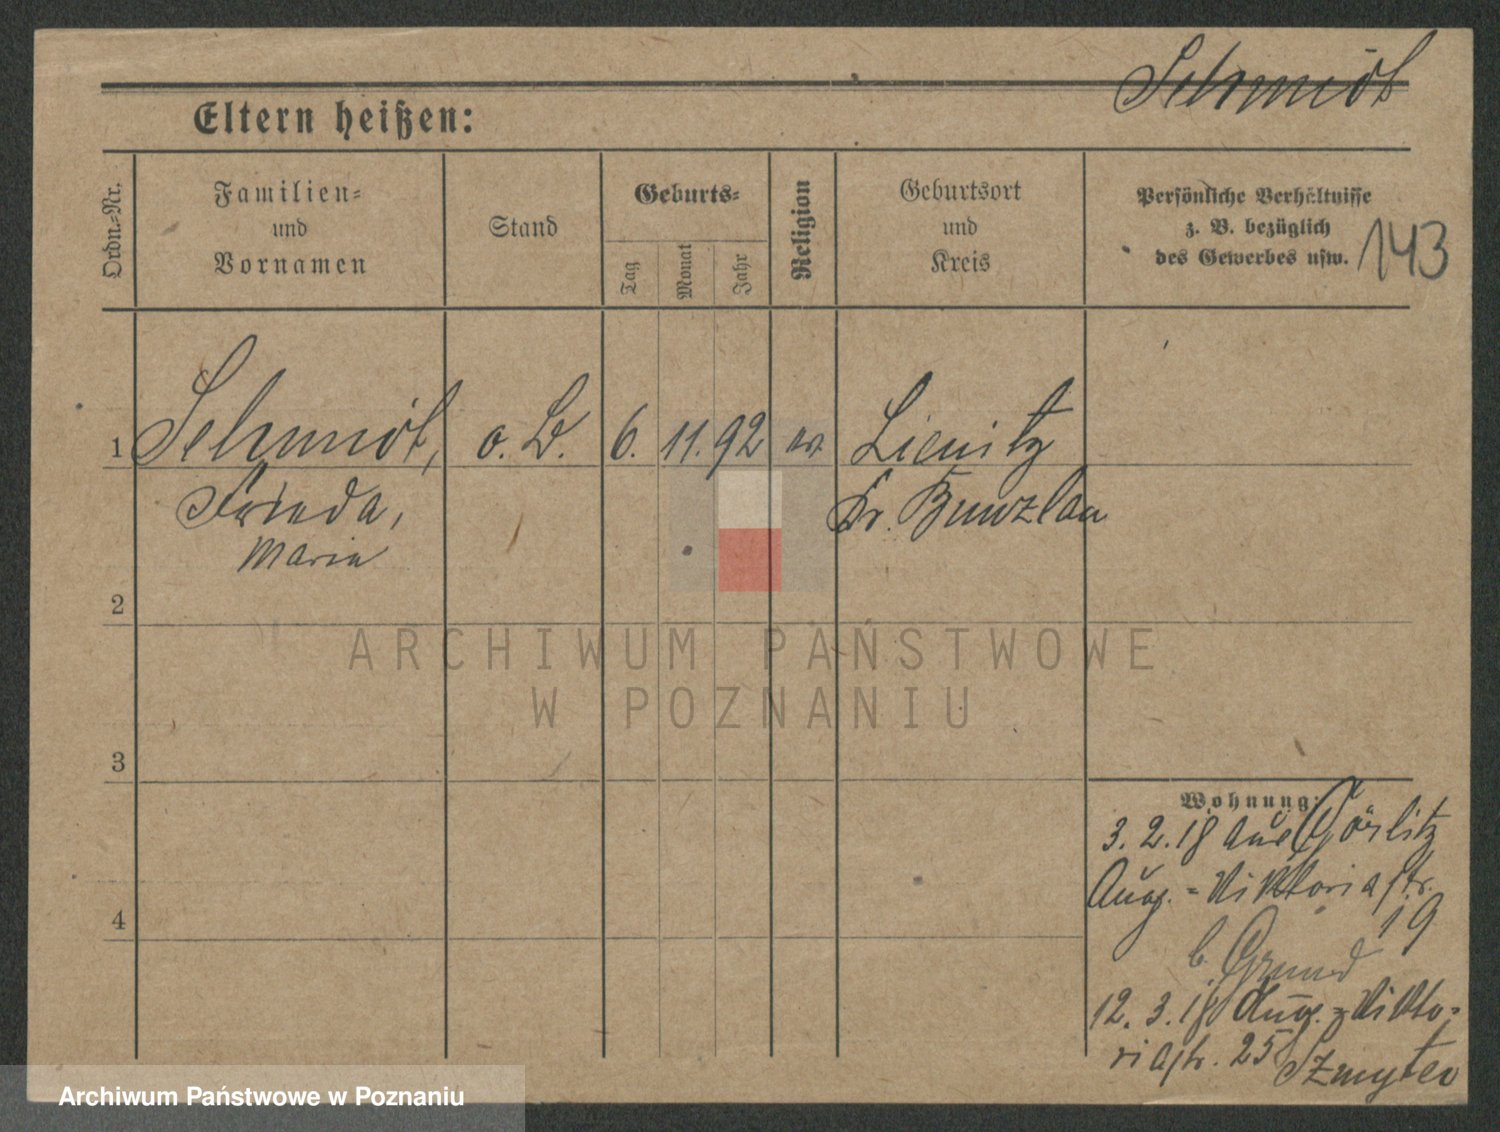 Schmidt
Eltern heißen:
Ordn.-Nr.
Familien-
und
Vornamen
Stand
Geburts-
Tag
Monat
Jahr
Religion
Geburtsort
und
Kreis
Persönliche Verhältnisse
z. B. bezüglich
des Gewerbes usw.
143
1 Schmidt, o. B. 6. 11. 92 ev. Lienitz
Frieda, Kr. Bunzlau
Maria
2
ARCHIWUM PAŃSTWOWE
W POZNANIU
3
Wohnung:
3. 2. 18 aus Görlitz
4
Aug.-Viktoriastr.
19
b. Grund
12. 3. 18 Aug.-Vikto-
riastr. 25
Archiwum Państwowe w Poznaniu